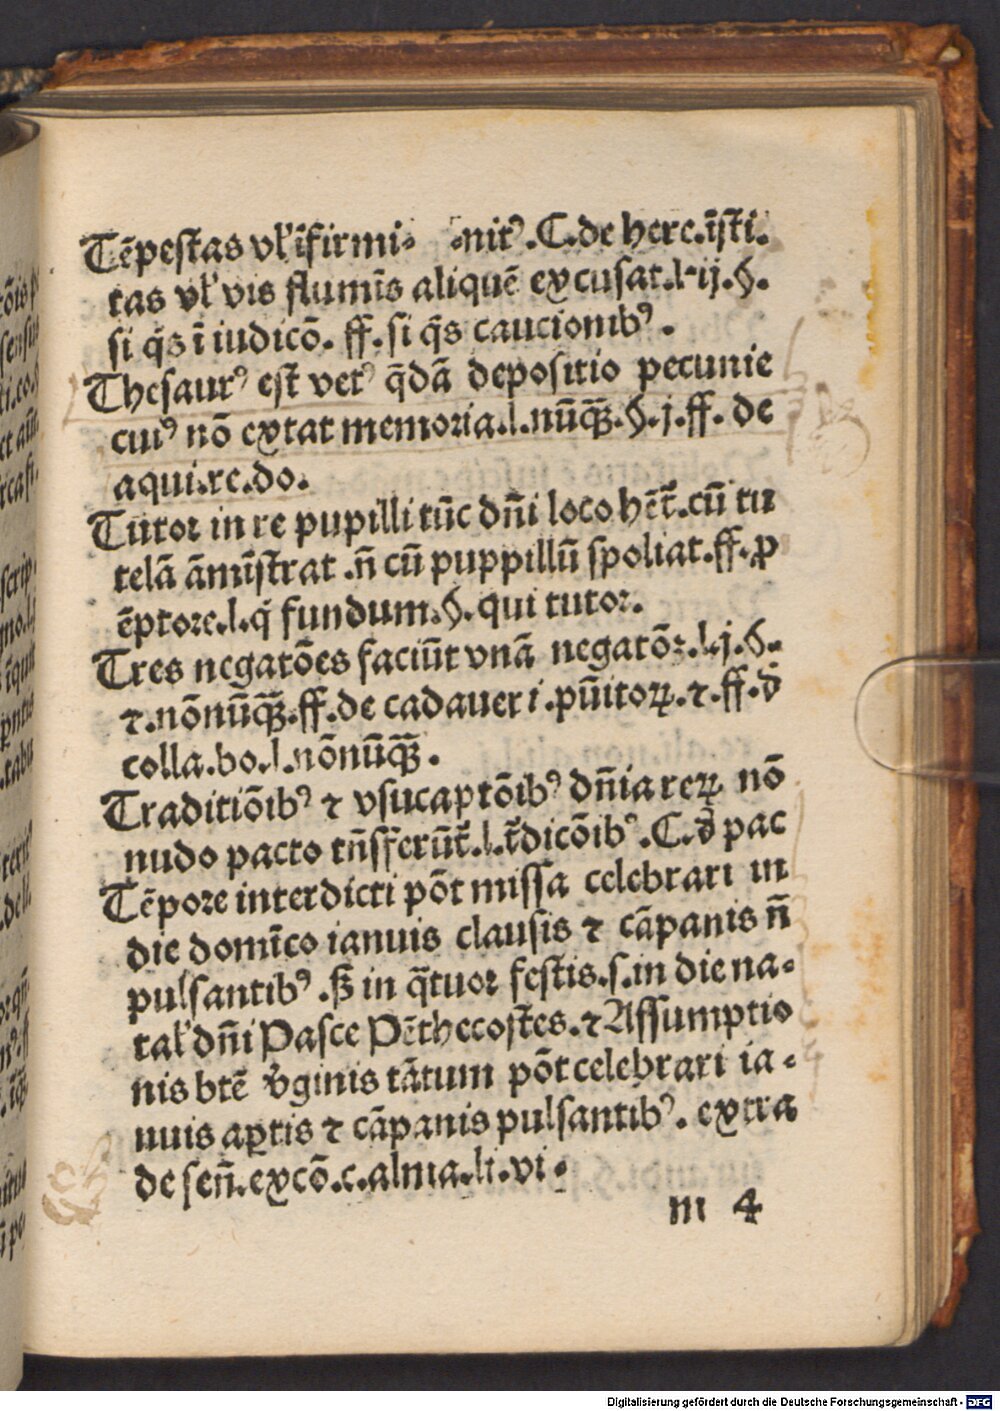 Tēpestas vl̓ īfirmi⸗ ⸗nitꝰ .C.de here.īsti.
tas vl̓ vis flumīs aliquē excusat.l.ij.§.
si q̄s ī iudicō. ff. si q̄s caucionibꝰ.
Thesaurꝰ est vetꝰ q̄dā depositio pecunie
cuiꝰ nō extat memoria.l.nūqꝫ̄.§.j.ff. de
aqui.re.do.
Tutor in re pupilli tūc dn̄i loco hēt̄.cū tu
telā āmīstrat .n̄ cū puppillū spoliat.ff.ꝓ
ēptore.l.q̓ fundum.§.qui tutor.
Tres negatōes faciūt vnā negatōꝫ.l.j.§.
⁊.nōnūqꝫ̄.ff.de cadaueri.pūitoꝝ.⁊.ff.d̓
colla.bo.l.nōnūqꝫ̄.
Traditiōibꝰ ⁊ vsucaptōibꝰ dn̄ia reꝝ nō
nudo pacto tn̄sferūt̄.l.t̄dicōibꝰ.C.d̓ pac
Tēpore interdicti pōt missa celebrari in
die domīco ianuis clausis ⁊ cāpanis n̄
pulsantibꝰ .sꝫ in q̄tuor festis.s.in die na⸗
tal̓ dn̄i Pasce Pēthecostes.⁊ Assumptio
nis btē v̓ginis tātum pōt celebrari ia⸗
nuis aꝑtis ⁊ cāpanis pulsantibꝰ. extra
de sen̄.excō.c.alma.li.vi.
m 4
Digitalisierung gefördert durch die Deutsche Forschungsgemeinschaft - DFG